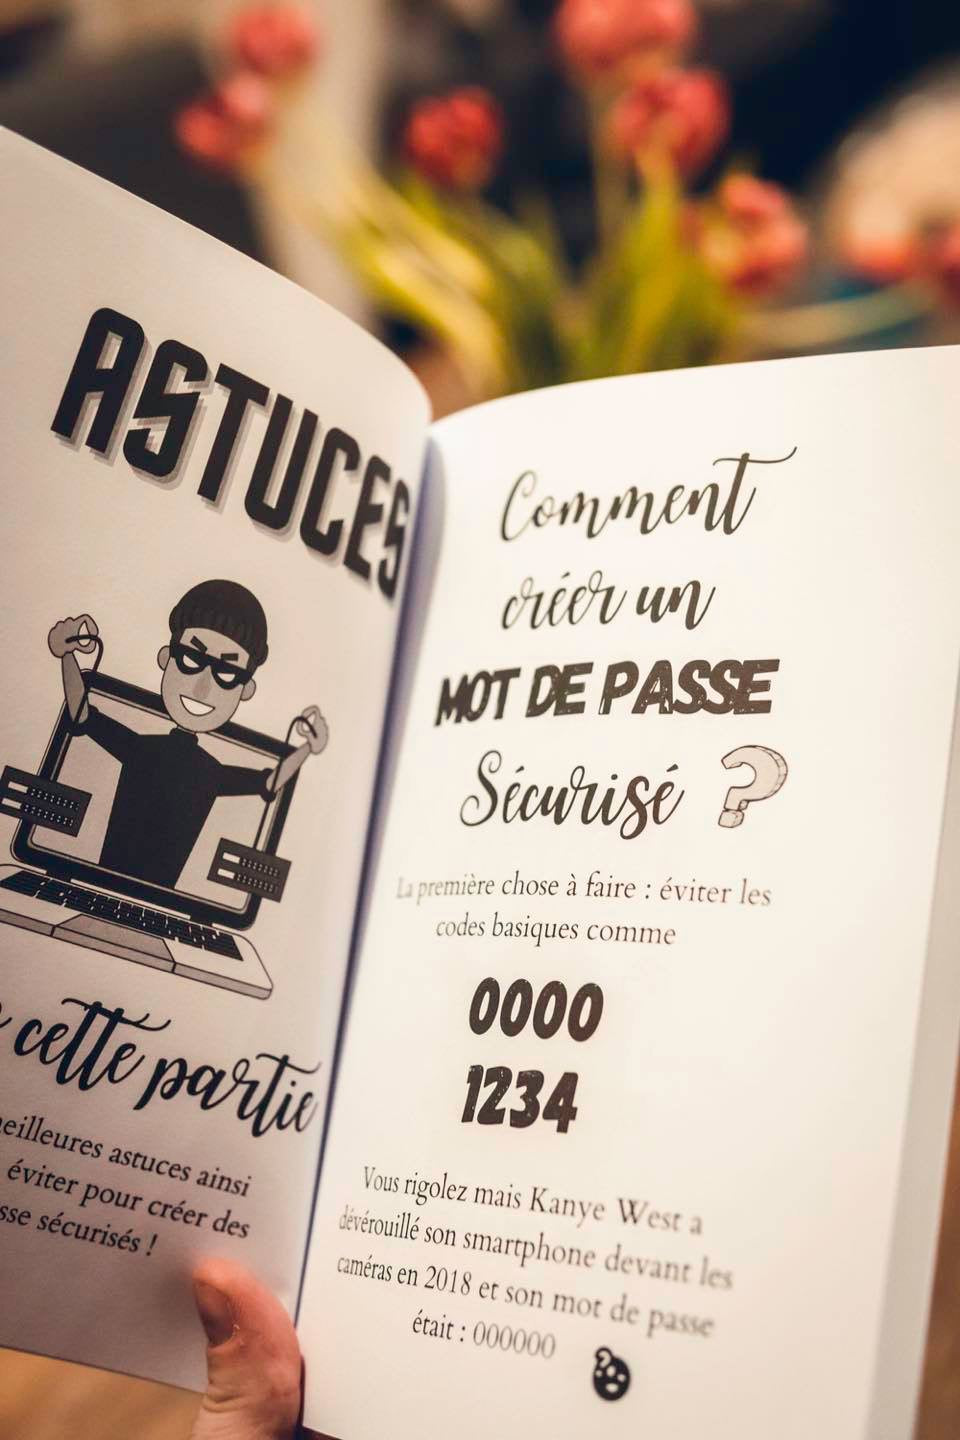 ASTUCES
cette partie
meilleures astuces ainsi
éviter pour créer des
sécurisés !
Comment
créer un
MOT DE PASSE
Sécurisé ?
La première chose à faire : éviter les
codes basiques comme
0000
1234
Vous rigolez mais Kanye West a
dévérouillé son smartphone devant les
caméras en 2018 et son mot de passe
était : 000000